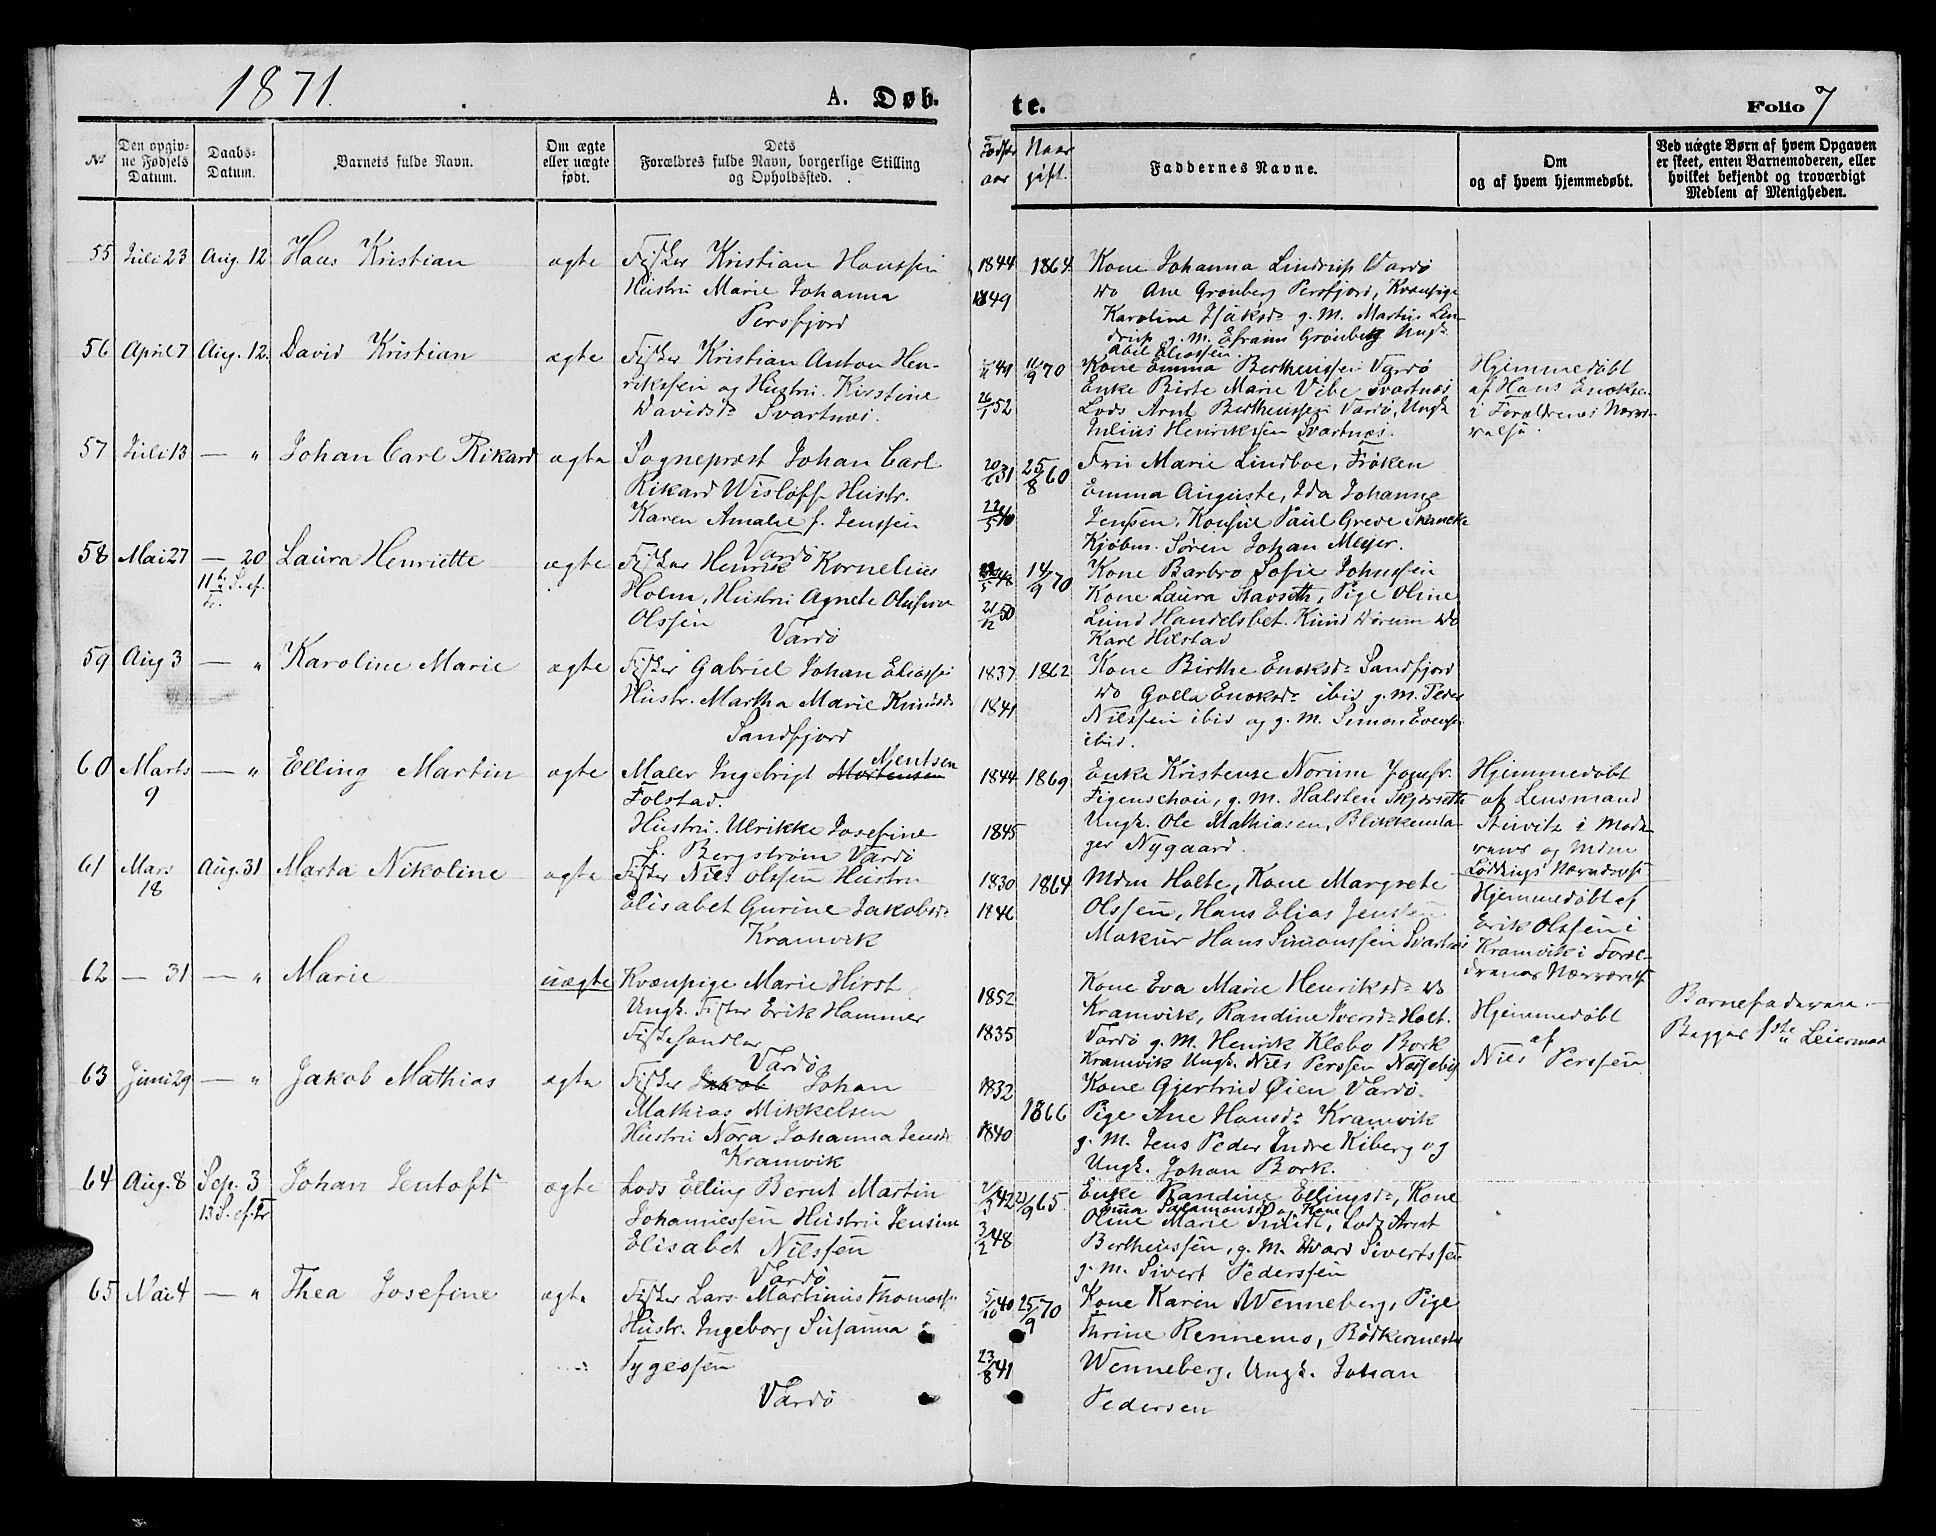 1871.
A. Døb-
te.
Folio 7
№
Den opgiv-
ne Fødsels
Datum.
Daabs-
Datum.
Barnets fulde Navn.
Om ægte
eller uægte
født.
Dets
Forældres fulde Navn, borgerlige Stilling
og Opholdssted.
Fødsels
aar
Naar
gift.
Faddernes Navne.
Om
og af hvem hjemmedøbt.
Ved uægte Børn af hvem Opgaven
er skeet, enten Barnemoderen, eller
hvilket bekjendt og troværdigt
Medlem af Menigheden.
55 Juli 23 Aug. 12 Hans Kristian ægte Fisker Kristian Hanssen
Hustru Marie Johanna
Persfjord
1844 1864
1849
Kone Johanna Lindrup Vardø
do Ane Grønberg Persfjord, Kvænpige
Karoline Isaksd. g. M. Martin Lin-
drup g. M. Efraim Grønberg Ungk.
Abel Eliassen.
56 April 7 Aug. 12. David Kristian ægte Fisker Kristian Anton Hen-
rikssen og Hustru Kirstine
Davidsd. Svartnæs.
49 11/9 70
26/1 52
Kone Emma Bertheussen Vardø
Enke Birte Marie Vibe Svartnæs
Lods Arnt Bertheussen Vardø, Ungk.
Julius Henrikssen Svartnæs.
Hjemmedøbt
af Hans Enoksen
i Forældrenes Nærvæ-
relse.
57 Juli 13 — " Johan Carl Rikard ægte Sogneprest Johan Carl
Rikard Wisløff Hustr.
Karen Amalie f. Jenssen
Vardø
20/6 31 25/8 60
22/5 40
Fru Marie Lindboe, Frøken
Emma Auguste, Ida Johanna
Jenssen, Konsul Paul Greve Skancke
Kjøbm. Søren Johan Meyer.
58 Mai 27 — 20 Laura Henriette ægte Fisker Henrik Kornelius
11te S. ef.
Tr.
Holm, Hustru Agnete Olufine
Olssen
Vardø
48 14/9 70
21/12 50
Kone Barbro Sofie Johnssen
Kone Laura Stavseth, Pige Oline
Lund Handelsbet. Knud Wirum do
Karl Hilstad
59 Aug 3 — " Karoline Marie ægte Fisker Gabriel Johan Eliassen
Hustr. Martha Marie Knudsd.
Sandfjord
1837 1862
1841
Kone Birthe Enoksd. Sandfjord
do Golla Enoksd. ibid g. M. Peder
Nilssen ibid og g. M. Simon Evensen
ibid.
60 Marts
9 — " Elling Martin ægte Maler Ingebrigt Mortensen Mentsen
Folstad.
Hustru. Ulrikke Josefine
f. Bergstrøm Vardø
1844 1869
1845
Enke Kristense Norum Jomfr.
Figenschou, g. M. Halsten Skjærseth
Ungk. Ole Mathiasen, Blikkensla-
ger Nygaard.
Hjemmedøbt
af Lensmand
i Mode-
rens og Mdm
Løddings Nærværelse
61 Mars
18 Aug. 31 Marta Nikoline ægte Fisker Nils Olssen Hustru
Elisabet Gurine Jakobsd.
Kramvik
1830 1864
1846
Mdm Holte, Kone Margrete
Olssen, Hans Elias Jenssen
Makur Hans Simonssen Svartnæs
Hjemmedøbt af
Erik Olssen i
Kramvik i Foræl-
drenes Nærværelse
62 — 31 — " Marie uægte Kvænpige Marie Hirst
Ungk. Fisker Erik Hammer
Fiskehandler
Vardø
1852
1835
Kone Eva Marie Henriksd. do
Kramvik, Randine Iversd. Holt.
Vardø g. M. Henrik Klæbo Bork
Kramvik Ungk. Nils Perssen Næsseby
Hjemmedøbt
af
Nils Perssen
Barnefaderen.
Begges 1ste Leiermaal
63 Juni 29 — " Jakob Mathias ægte Fisker Jakob Johan
Mathias Mikkelsen
Hustru Nora Johanna Jensd.
Kramvik
1832
1866
1840
Kone Gjertrud Øien Vardø.
Pige Ane Hansd. Kramvik
g. M. Jens Peder Indre Kiberg og
Ungk. Johan Bork.
64 Aug. 8 Sep. 3 Johan Jentoft ægte Lods Elling Bernt Martin
13 S. ef. Tr
Johannessen Hustru Jensine
Elisabet Nilssen
Vardø
42 21/9 65.
3/2 48
Enke Randine Ellingsd., Kone
Emma Salamonsd. og Kone
Oline Marie Smidt, Lods Arnt
Bertheussen, g. M. Edvard Sivertssen
g. M. Sivert Pederssen
65 Mai 4 — " Thea Josefine ægte Fisker Lars Martinus Thomassen
Hustr. Ingeborg Susanna
Tygessen
Vardø
5/10 40 25/9 70
23/8 41
Kone Karen Wenneberg, Pige
Thrine Rennemo, Bødkermester
Wenneberg, Ungk. Johan
Pedersen